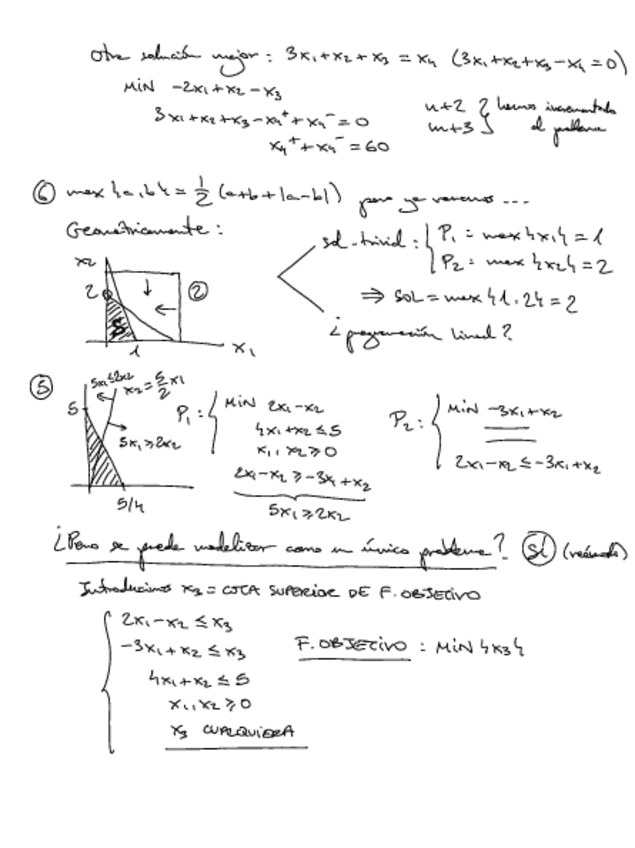 Otra solución mejor: 3x₁+x₂+x₃ = x₄ (3x₁+x₂+x₃-x₄=0)
MIN -2x₁+x₂-x₃
3x₁+x₂+x₃-x₄⁺+x₄⁻=0
x₄⁺+x₄⁻=60
n+2
m+3 } hemos incrementado el problema
⑥ max{a,b}= 1/2 (a+b+|a-b|) pero ya veremos ...
Geométricamente:
x₂
2
S
1
x₁
②
sol-trivial: { P₁ = max{x₁} = 1
P₂ = max{x₂} = 2
⇒ SOL = max{1,2} = 2
¿programación lineal?
⑤
5x₁≤2x₂
x₂=5/2 x₁
5
5x₁≥2x₂
5/4
P₁: { MIN 2x₁-x₂
4x₁+x₂≤5
x₁,x₂≥0
2x₁-x₂≥-3x₁+x₂
5x₁≥2x₂
P₂: { MIN -3x₁+x₂
2x₁-x₂≤-3x₁+x₂
¿Pero se puede modelizar como un único problema? SÍ
Introducimos x₃ = COTA SUPERIOR DE F.OBJETIVO
{ 2x₁-x₂≤x₃
-3x₁+x₂≤x₃
4x₁+x₂≤5
x₁,x₂≥0
x₃ CUALQUIERA
F.OBJETIVO: MIN{x₃}